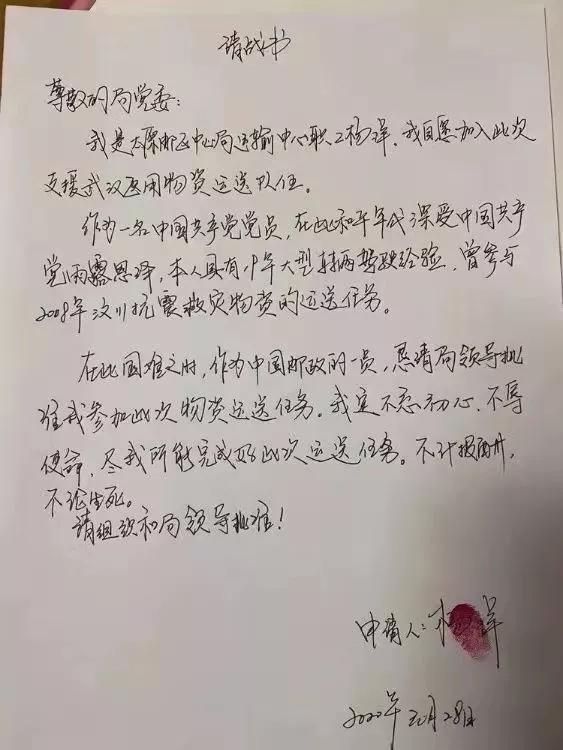 请战书
尊敬的局党委：
我是太原邮区中心局运输中心职工杨洋，我自愿加入此次
支援武汉医用物资运送队伍。
作为一名中国共产党党员，在此和平年代深受中国共产
党雨露恩泽，本人具有小年大型车辆驾驶经验，曾参与
2008年汶川抗震救灾物资的运送任务。
在此困难之时，作为中国邮政的一员，恳请局领导批
准我参加此次物资运送任务。我定不忘初心，不辱
使命，尽我所能完成好此次运送任务。不计报酬，
不论生死。
请组织和局领导批准！
申请人：杨洋
2020年元月28日